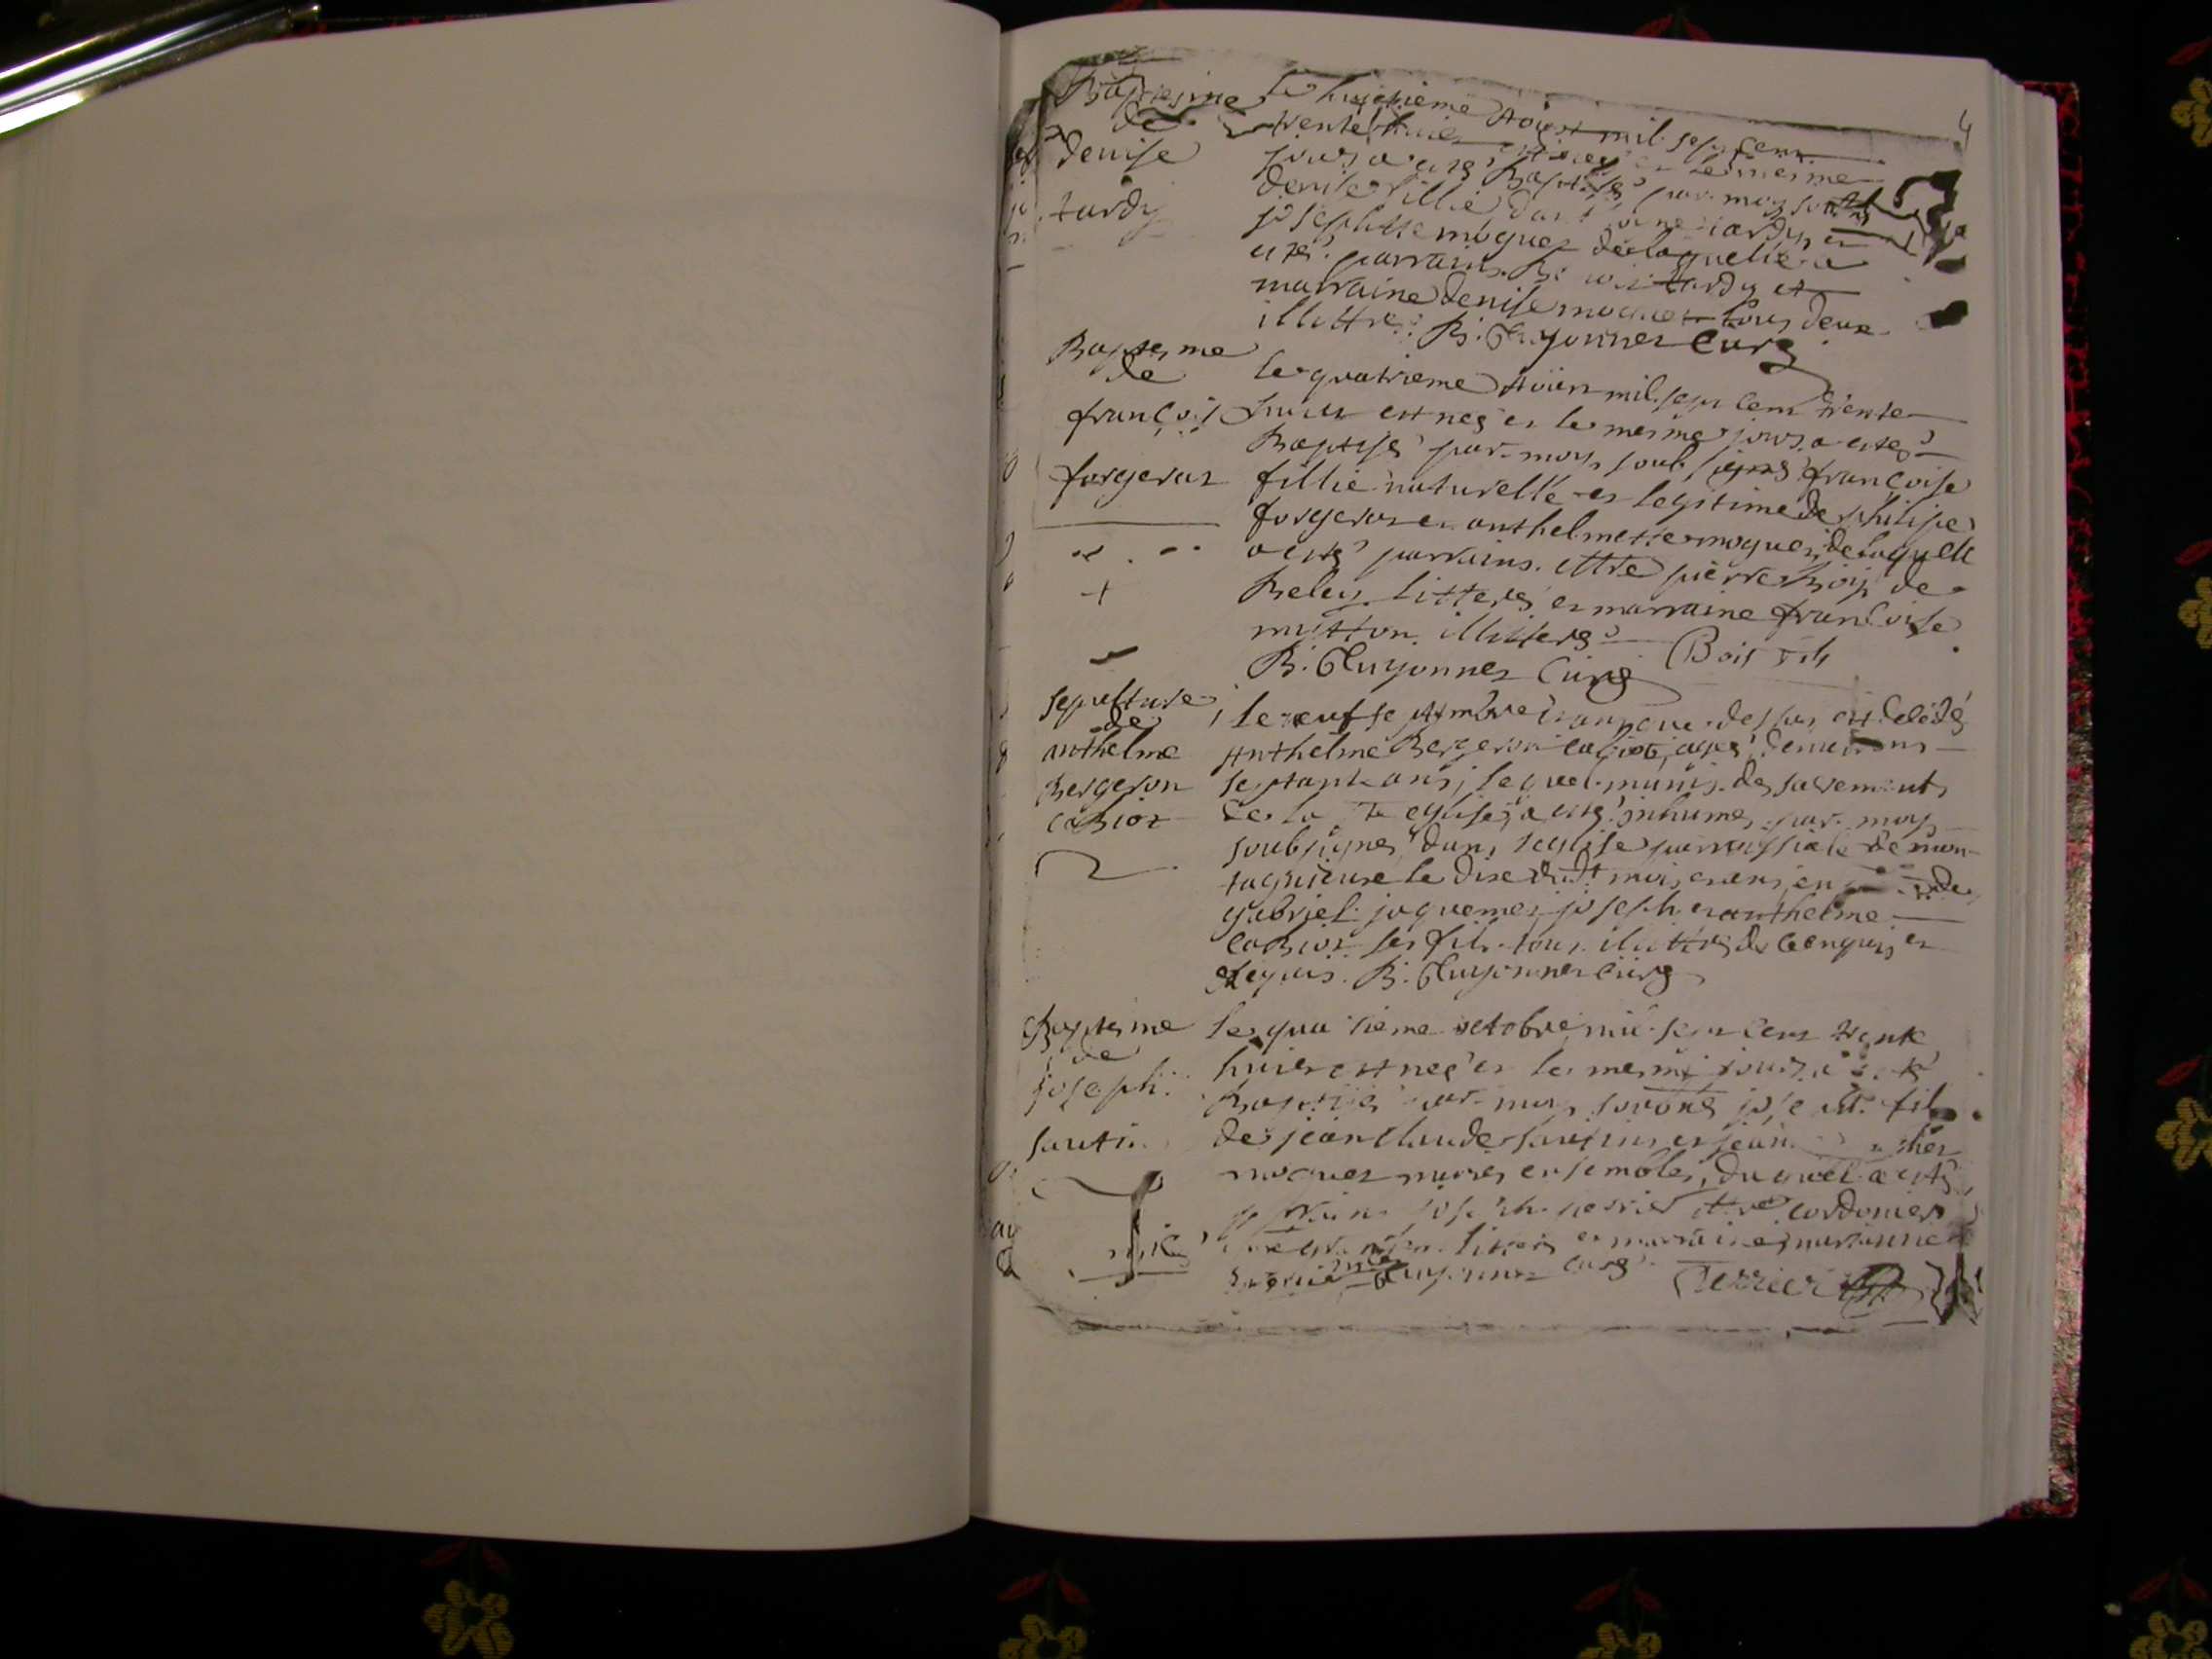 4
Baptesme
de
denise
tardy
Le huictieme Aoust mil sept cent
trente huict est neé et le mesme
jours a eté Baptisé par moy soub
denise fillie d'antoine tardy et
josephtte moguet de laquelle a
eté parrains tardy et
marraine denise moguet tous deux
illittre: B. Guyonnet Curé
Baptesme
de
françois
forgerat
le quatrieme Aoüst mil sept cent trente
huict est neé et le mesme jours a eté
Baptisé par moy soub signé françoise
fillie naturelle et legitime de philipe
forgerat et anthelmette moguet, de laquelle
a eté parrains Mtre pierre Bois de
Beley litteré et marraine françoise
mutton illitteré Bois fils
B. Guyonnet Curé
sepulture
de
anthelme
Bergeron
caBiot
le neuf septembre l'an que dessus est decedé
Anthelme Bergeron caBiot, agé d'environs
septante ans, lequel munis des sacrements
de la Ste eglise, a eté inhumé par moy
soubsigné dans l'eglise parroissiale de mon-
tagnieux le dixe dudt mois
gabriel jaquemet joseph et anthelme
caBiot ses fils tous illittrés de ce enquis et
requis. B. Guyonnet Curé
Baptesme
de
joseph
sautin
le quatrieme octobre mil sept cent trente
huict est neé et le mesme jours a eté
Baptisé par moy soubné joseph fils
de jean Claude sautin et jean
moguet mariés ensembles, duquel a eté
parrains joseph perrier Mtre cordonier
litteré et marraine marianne
Guyonnet curé Perrier